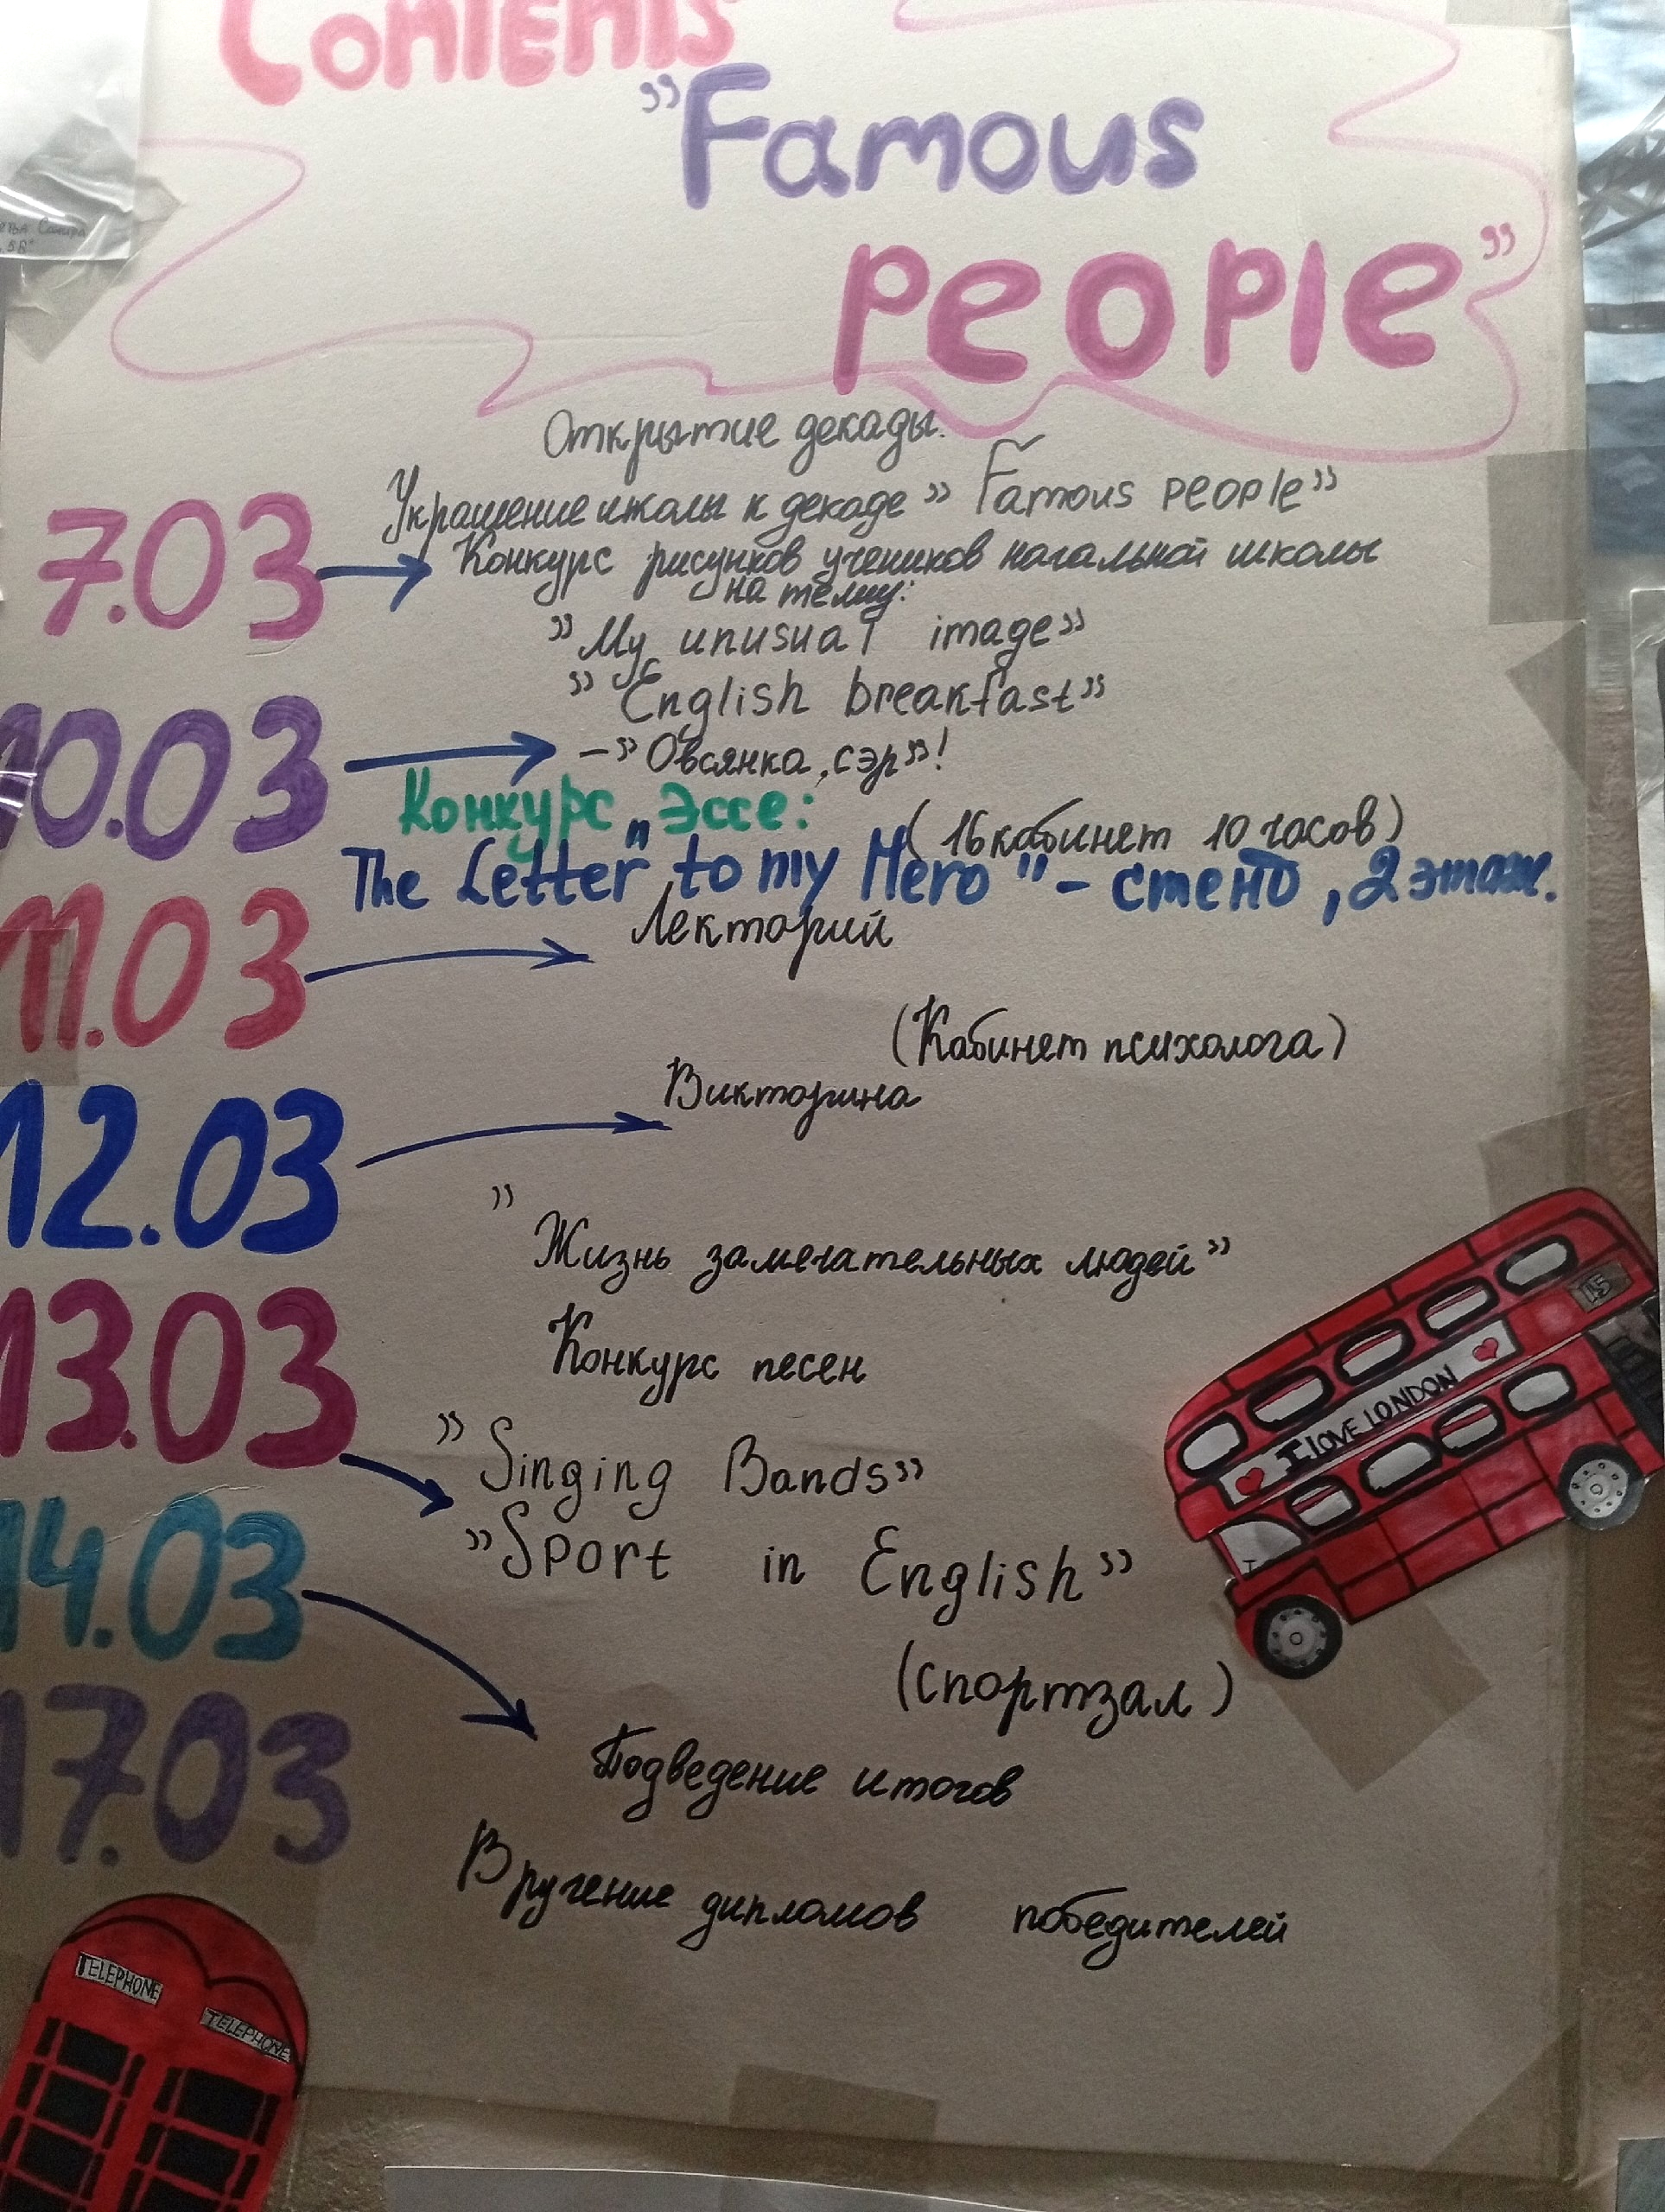 Contents
"Famous
People"
Открытие декады.
Украшение школы к декаде "Famous people"
7.03
Конкурс рисунков учеников начальной школы
на тему:
"My unusual image"
"English breakfast"
10.03
-"Овсянка, сэр"!
Конкурс эссе:
(16 кабинет 10 часов)
"The Letter to my Hero" - стенд, 2 этаж.
11.03
Лекторий
(Кабинет психолога)
12.03
Викторина
"Жизнь замечательных людей"
13.03
Конкурс песен
"Singing Bands"
14.03
"Sport in English"
(спортзал)
17.03
Подведение итогов
Вручение дипломов победителей
I LOVE LONDON
15
TELEPHONE
TELEPHONE